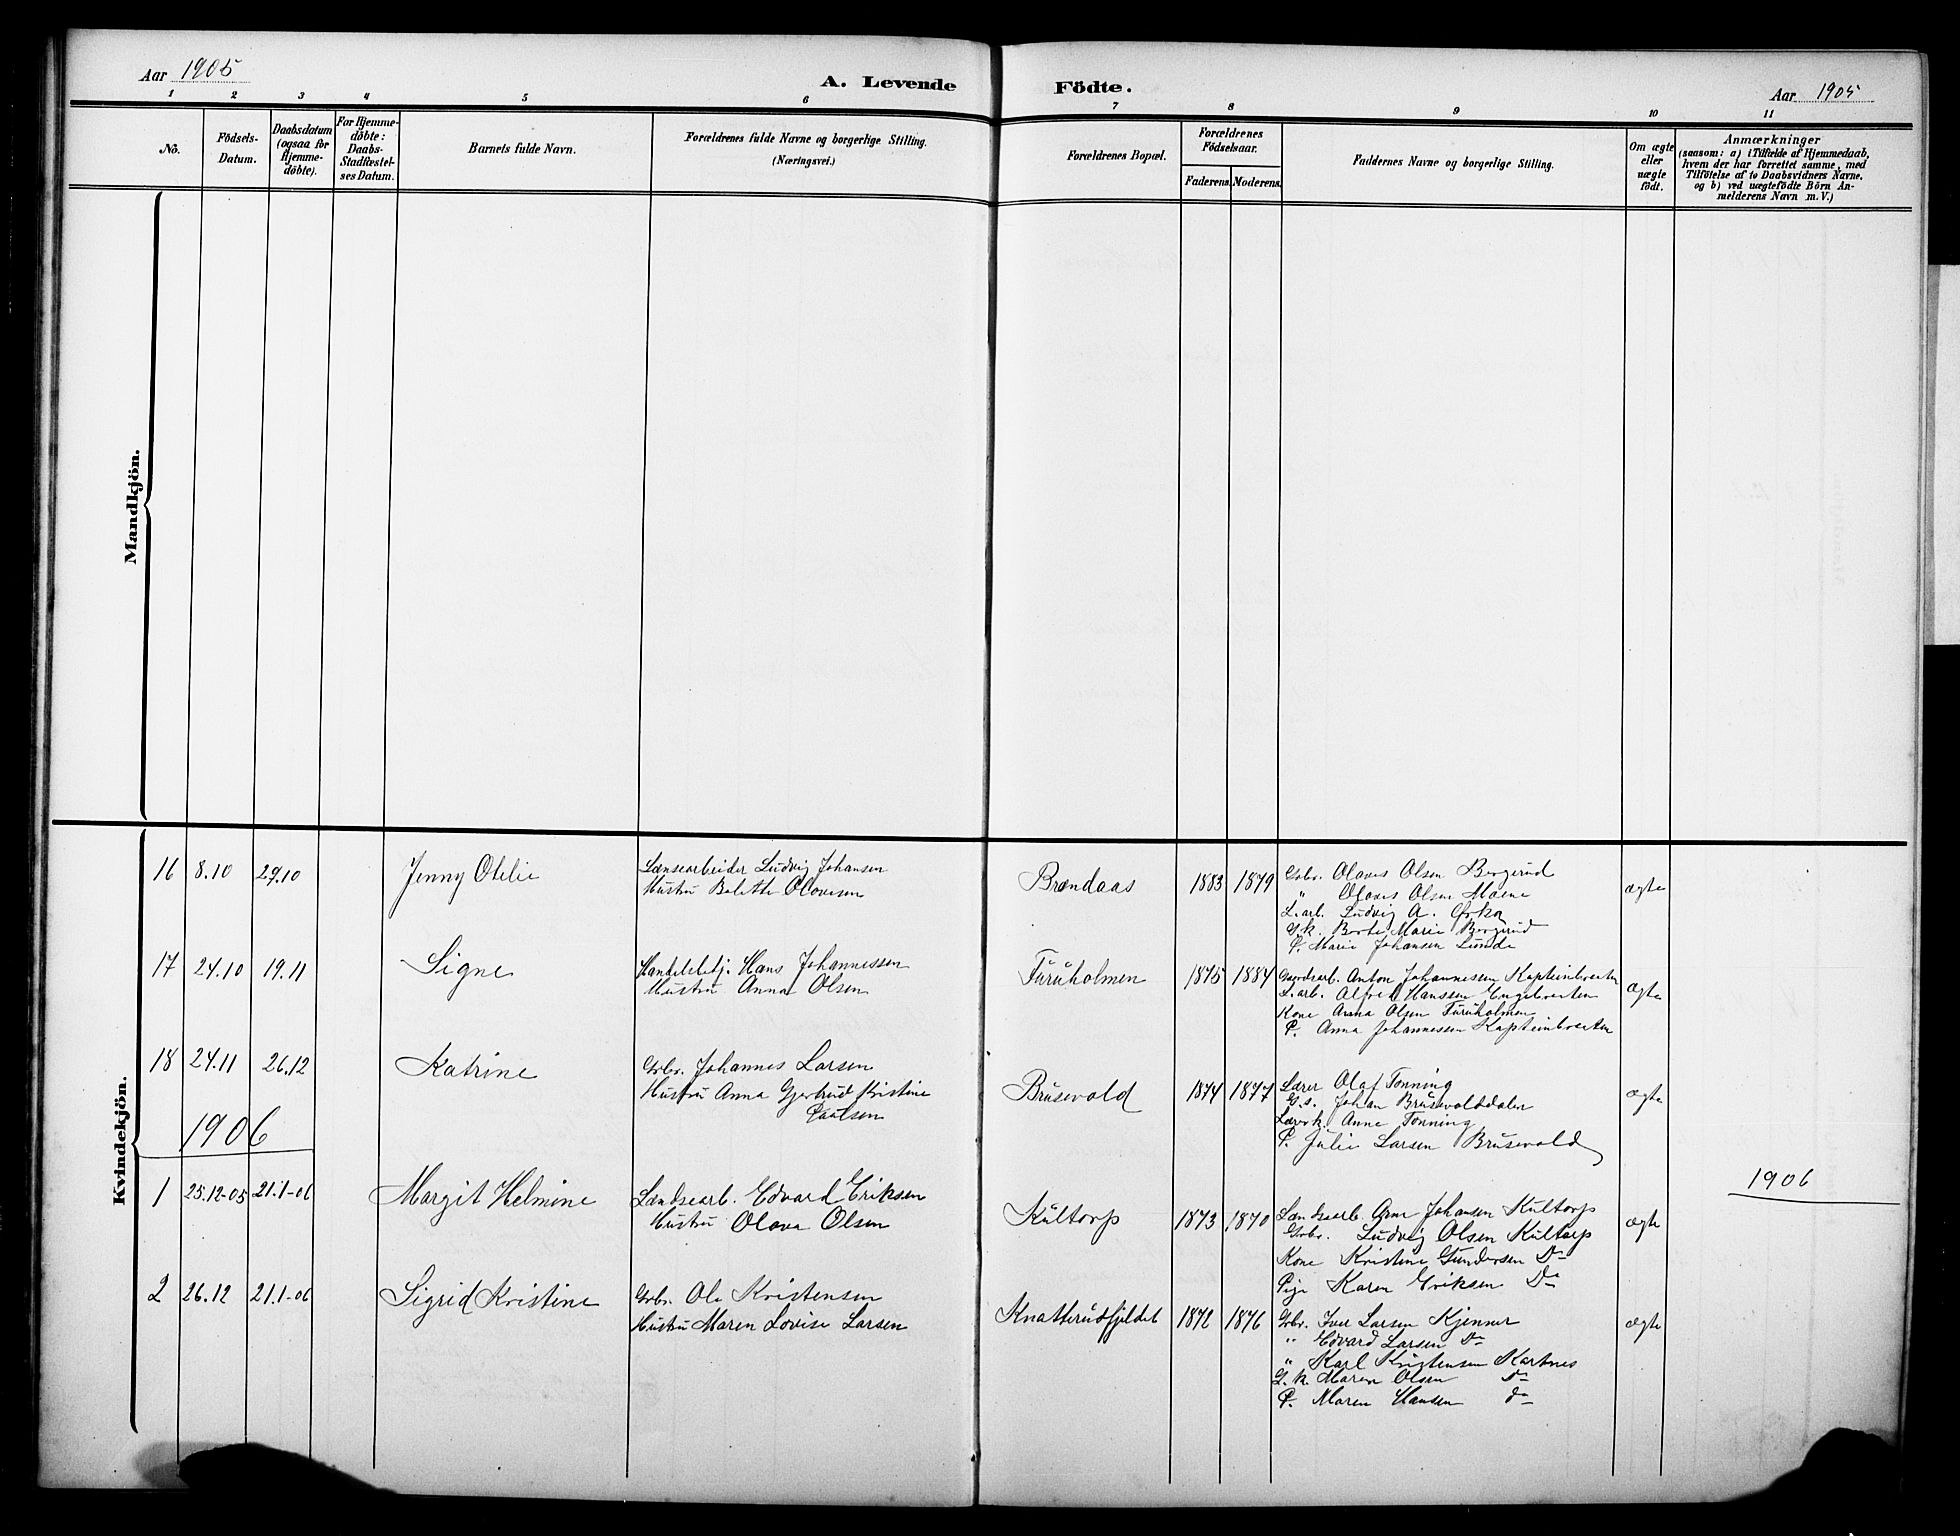 Aar 1905
A. Levende
Födte.
Aar 1905
1 2 3 4 5 6 7 8 9 10 11
No.
Födsels-
Datum.
Daabsdatum
(ogsaa for
Hjemme-
döbte).
For Hjemme-
döbte:
Daabs-
Stadfæstel-
ses Datum.
Barnets fulde Navn.
Forældrenes fulde Navne og borgerlige Stilling.
(Næringsvei.)
Forældrenes Bopæl.
Forældrenes
Födselsaar.
Faderens. Moderens.
Faddernes Navne og borgerlige Stilling.
Om ægte
eller
uægte
födt.
Anmærkninger
(saasom: a) i Tilfælde af Hjemmedaab,
hvem der har forrettet samme, med
Tilföielse af to Daabsvidners Navne,
og b) ved uægtefödte Börn An-
melderens Navn m. V.)
Mandkjön.
Kvindekjön.
16 8.10 29.10 Jenny Otilie
Lænsearbeider Ludvig Johansen
Hustru Bolette Olovesen
Brændaas 1883 1879
Gbr. Olaves Olsen Bergerud
" Olaves Olsen Moene
L.arb. Ludvig A.
G.k. Berte Marie Bergerud
P. Marie Johansen Lunde
ægte
17 24.10 19.11 Signe
Handelsbetj. Hans Johannessen
Hustru Anna Olsen
Furuholmen 1875 1884
Gaardsarb. Anton Johannessen
L.arb. Alfred Hanssen
Kone Anna Olsen Furuholmen
P. Anna Johannessen
ægte
18 24.11 26.12 Katrine
Gbr. Johannes Larsen
Hustru Anna Gjertrud Kristine
Paulsen
Brusevold 1874 1877
Lærer Olaf Tonning
G.s. Johan Brusevolddalen
Lærerk. Anne Tonning
P. Julie Larsen Brusevold
ægte
1906
1906
1 25.12-05 21.1-06 Margit Helmine
Lændsearb. Edvard Eriksen
Hustru Olava Olsen
Kultorp 1873 1870
Lændsearb. Arne Johansen Kultorp
Gbr. Ludvig Olsen Kultorp
Kone Kristine Gundersen Do
Pige Karen Eriksen Do
ægte
2 26.12 21.1-06 Sigrid Kristine
Gbr. Ole Kristensen
Hustru Maren Lovise Larsen
Knatterudfjeldet 1872 1876
Gbr. Iver Larsen Kjenner
" Edvard Larsen Do
" Karl Kristensen Kartnes
G.k. Maren Olsen Do
P. Maren Hansen do
ægte